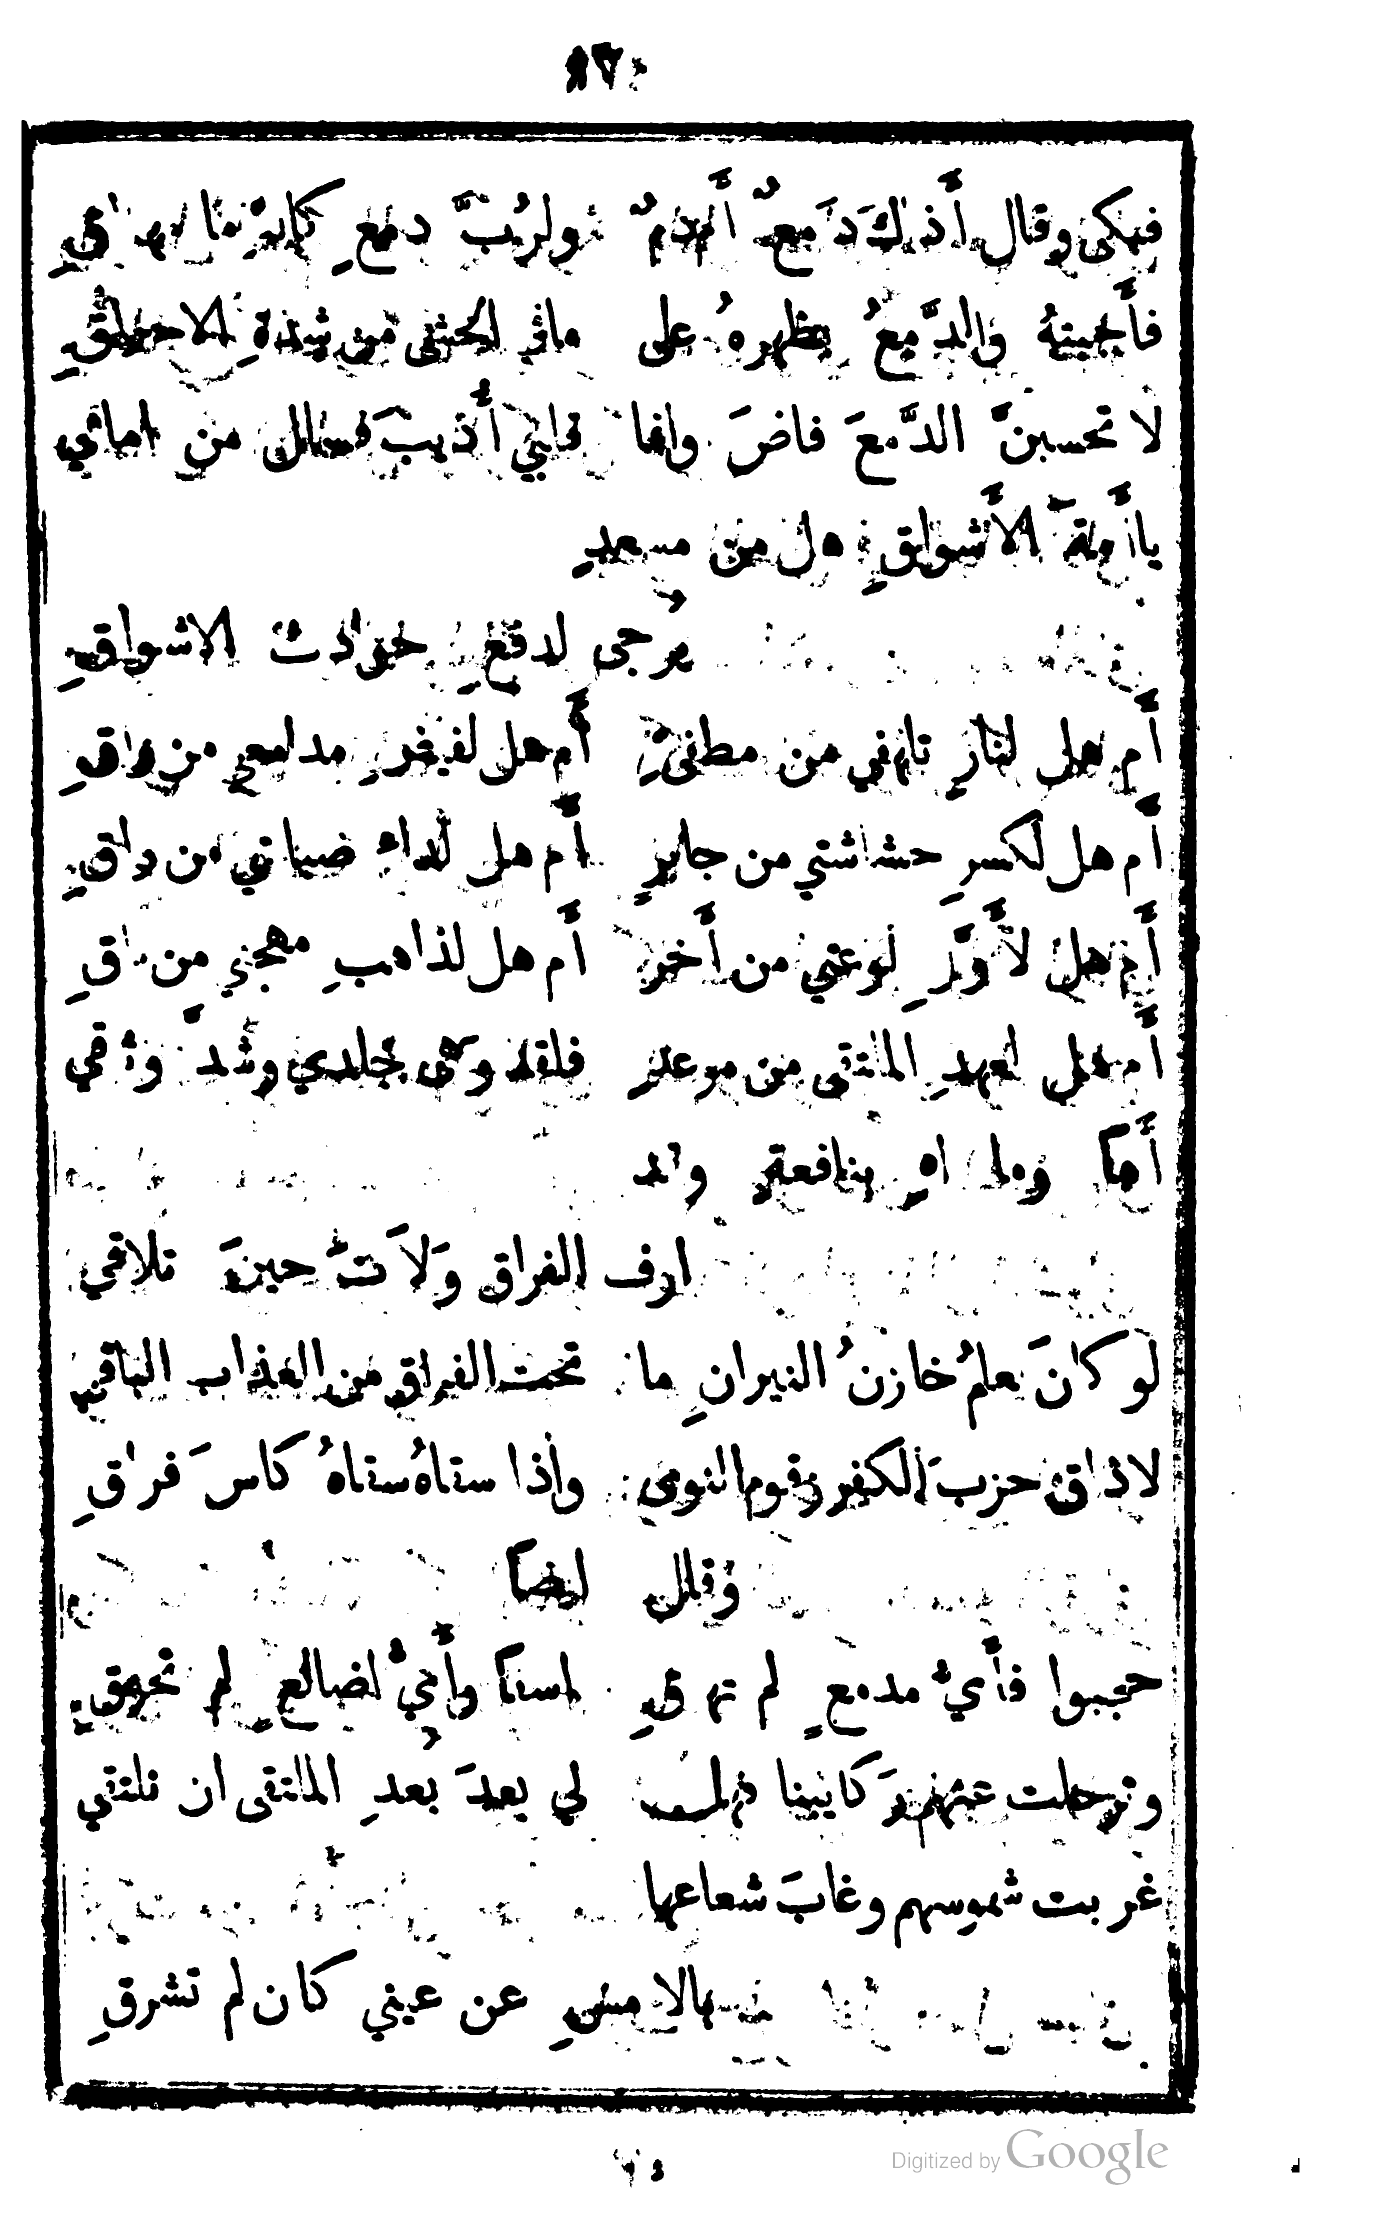 فبكى وقال أذلك دمعٌ أم دمٌ ولرُبَّ دمعٍ كان
فأجبتهُ والدَّمعُ يظهرهُ على ما في الحشى من شدةِ الاحراقِ
لا تحسبنَّ الدَّمعَ فاضَ وانما قلبي أُذيبَ فسال من اماقي
يا أزمةَ الأشواقِ هل من مسعدٍ
يُرجى لدفعِ حوادث الاشواقِ
أم هل لنارِ تلهفي من مطفئٍ أم هل لفيضِ مدامعي من واقِ
أم هل لكسرِ حشاشتي من جابرٍ أم هل لداءِ صبابتي من راقِ
أم هل لأَوَّلِ لوعتي من أخرٍ أم هل لذاهبِ مهجتي من باقِ
أم هل لعهدِ الملتقى من موعدٍ فلقد وهى جلدي وشُدَّ وثاقي
أهاً وما اهٍ بنافعةٍ وقد
ازف الفراق وَلاَتَ حينَ تلاقي
لو كانَ يعلمُ خازنُ النيرانِ ما تحت الفراقِ من العذاب الباقي
لا ذاقَ حزبَ الكفرِ زقوم النوى واذا سقاهُ سقاهُ كاسَ فراقِ
وقال ايضاً
حجبوا فأيُّ مدمعٍ لم تهرقِ اسفاً وأيُّ اضالعٍ لم تحرقِ
وترحلت عنهم ركايبنا فهل لي بعدَ بُعدِ الملتقى ان نلتقي
غربت شموسهم وغابَ شعاعها
بالامسِ عن عيني كان لم تشرقِ
Digitized by Google